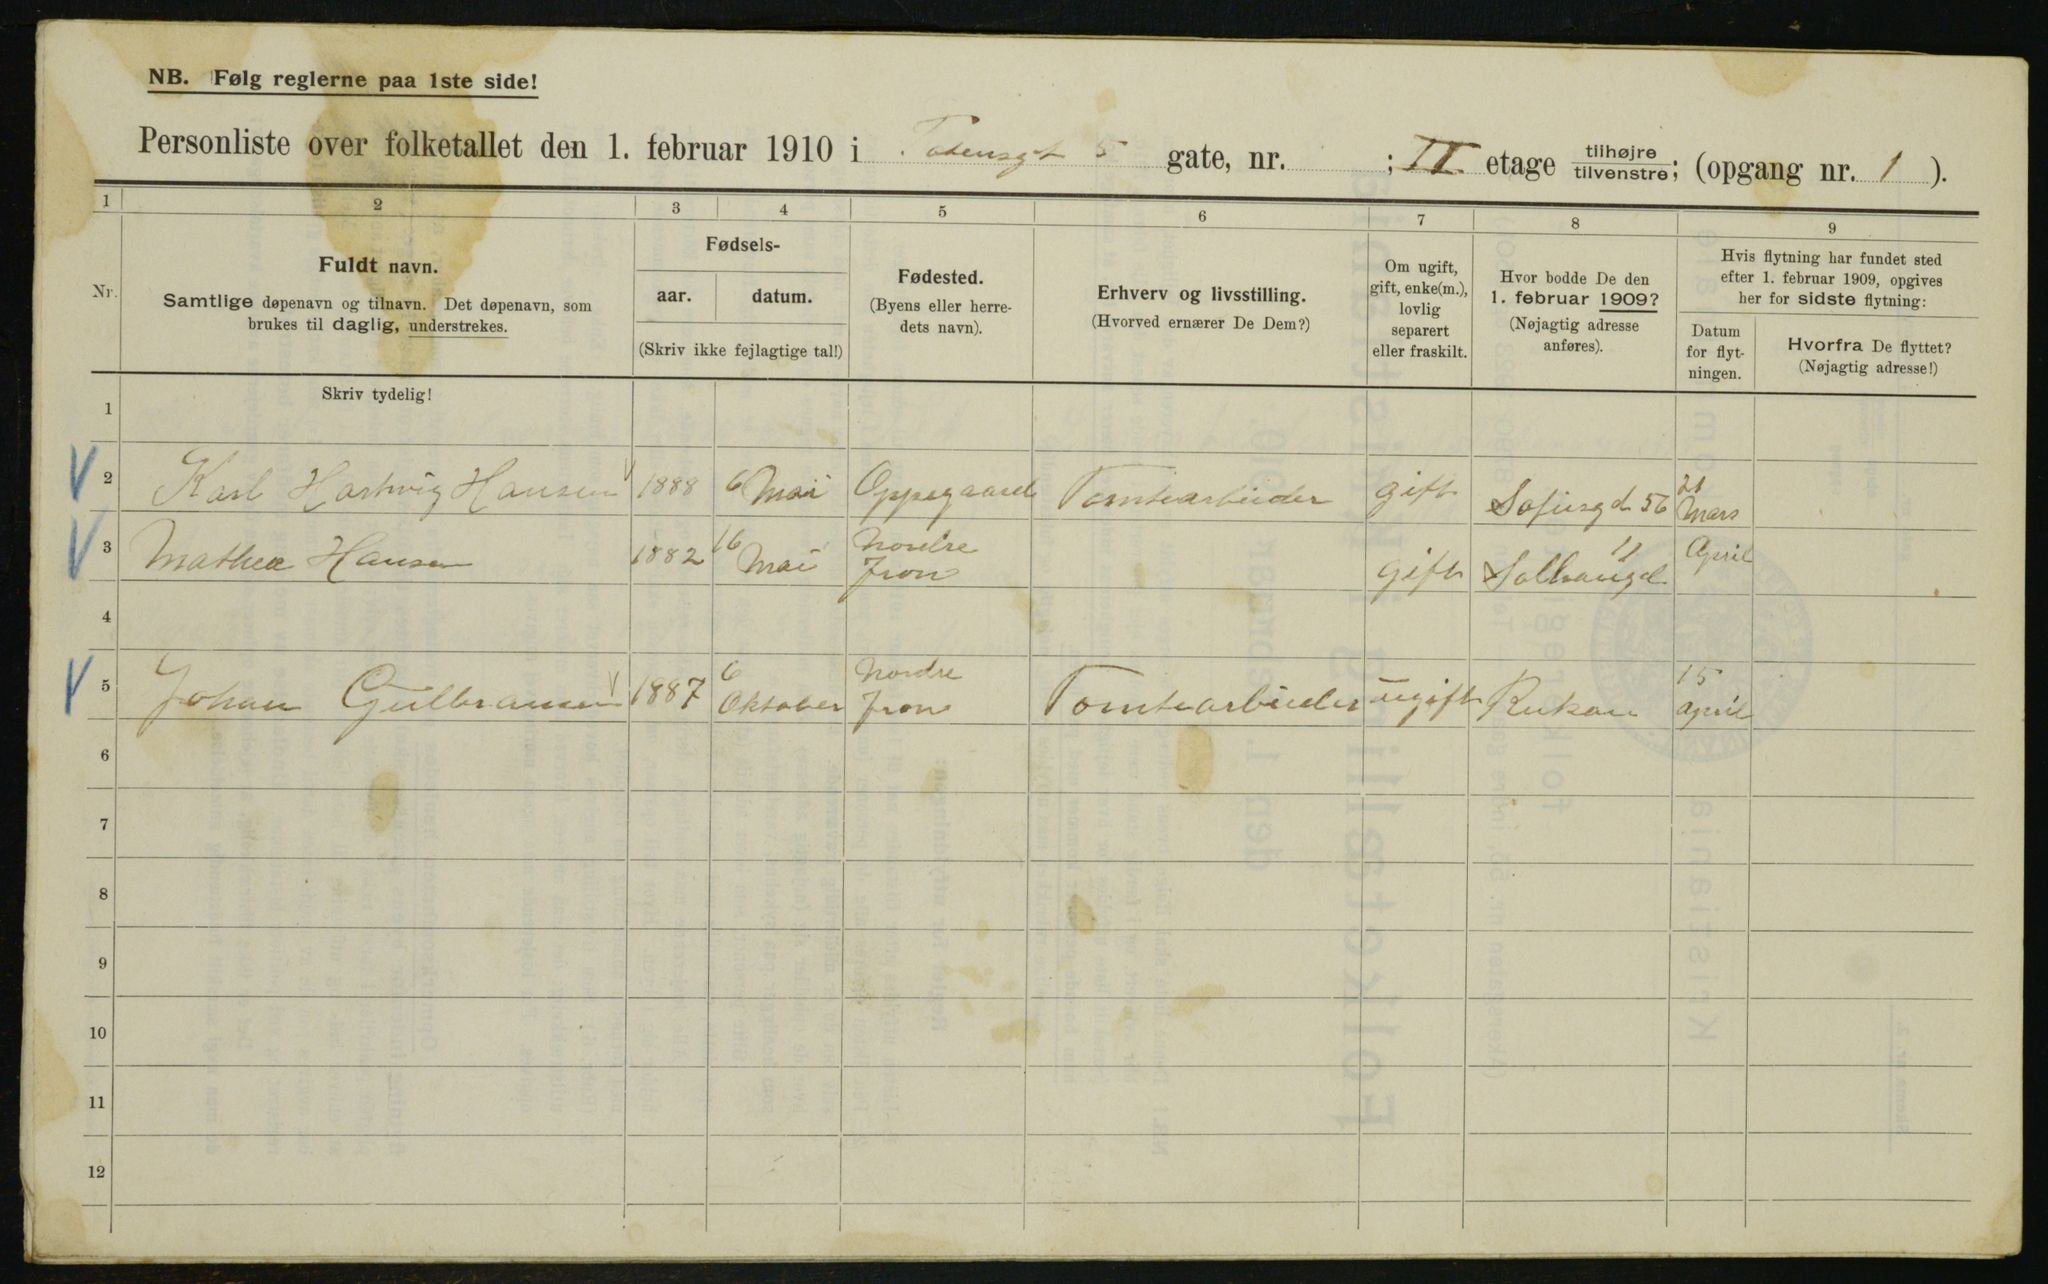 NB. Følg reglerne paa 1ste side!
Personliste over folketallet den 1. februar 1910 i Totensgt 5 gate, nr. ; II etage tilhøjre/tilvenstre; (opgang nr. 1 ).
1 2 3 4 5 6 7 8 9
Nr.
Fuldt navn.
Samtlige døpenavn og tilnavn. Det døpenavn, som
brukes til daglig, understrekes.
Skriv tydelig!
Fødsels-
aar. datum.
(Skriv ikke fejlagtige tal!)
Fødested.
(Byens eller herre-
dets navn).
Erhverv og livsstilling.
(Hvorved ernærer De Dem?)
Om ugift,
gift, enke(m.),
lovlig
separert
eller fraskilt.
Hvor bodde De den
1. februar 1909?
(Nøjagtig adresse
anføres).
Hvis flytning har fundet sted
efter 1. februar 1909, opgives
her for sidste flytning:
Datum
for flyt-
ningen.
Hvorfra De flyttet?
(Nøjagtig adresse!)
1
2 Karl Hartvig Hansen 1888 6 Mai Oppegaard Tomtearbeider gift Sofiesgd 56 21 Mars
3 Mathea Hansen 1882 16 Mai Nordre Fron gift Solhaugd 11 April
4
5 Johan Gulbransen 1887 6 Oktober Nordre Fron Tomtearbeider ugift Rukan 15 April
6
7
8
9
10
11
12